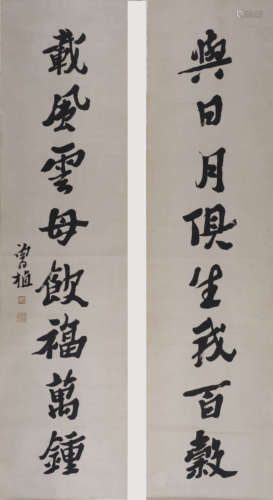 與日月俱生我百穀
載風雲母飲福萬鍾
曾植